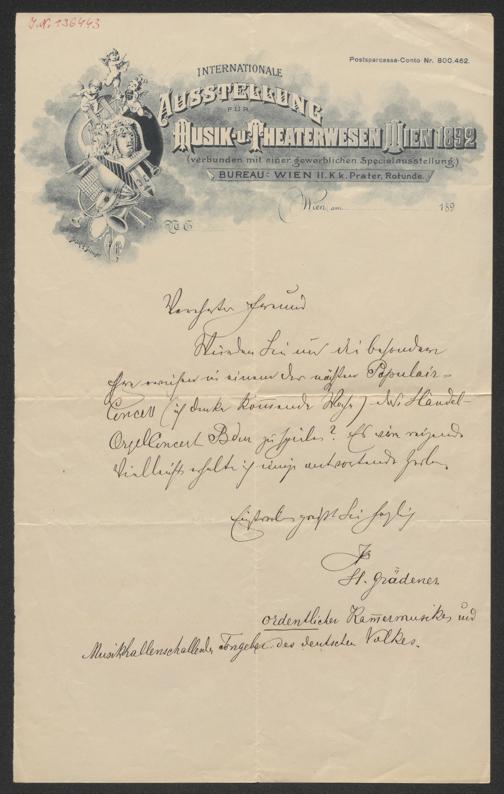 J.N. 136443
Postsparcassa-Conto Nr. 800.462.
INTERNATIONALE
AUSSTELLUNG
FÜR
MUSIK-U. THEATERWESEN WIEN 1892
(verbunden mit einer gewerblichen Specialausstellung)
BUREAU: WIEN II. K. k. Prater, Rotunde.
Wien, am 189
Verehrter Freund
Würden Sie mir die besondere
Ehre erweisen in einem der nächsten Populair-
Concerte (ich denke kommende Woche) das Händel-
Orgelconcert Bdur zu spielen? Es
Vielleicht erhalte ich einige antwortende
grüßt Sie herzlich
Ihr
H. Grädener
ordentlicher Kam̅ermusiker und
Musikhallenschallender Tongeber des deutschen Volkes.